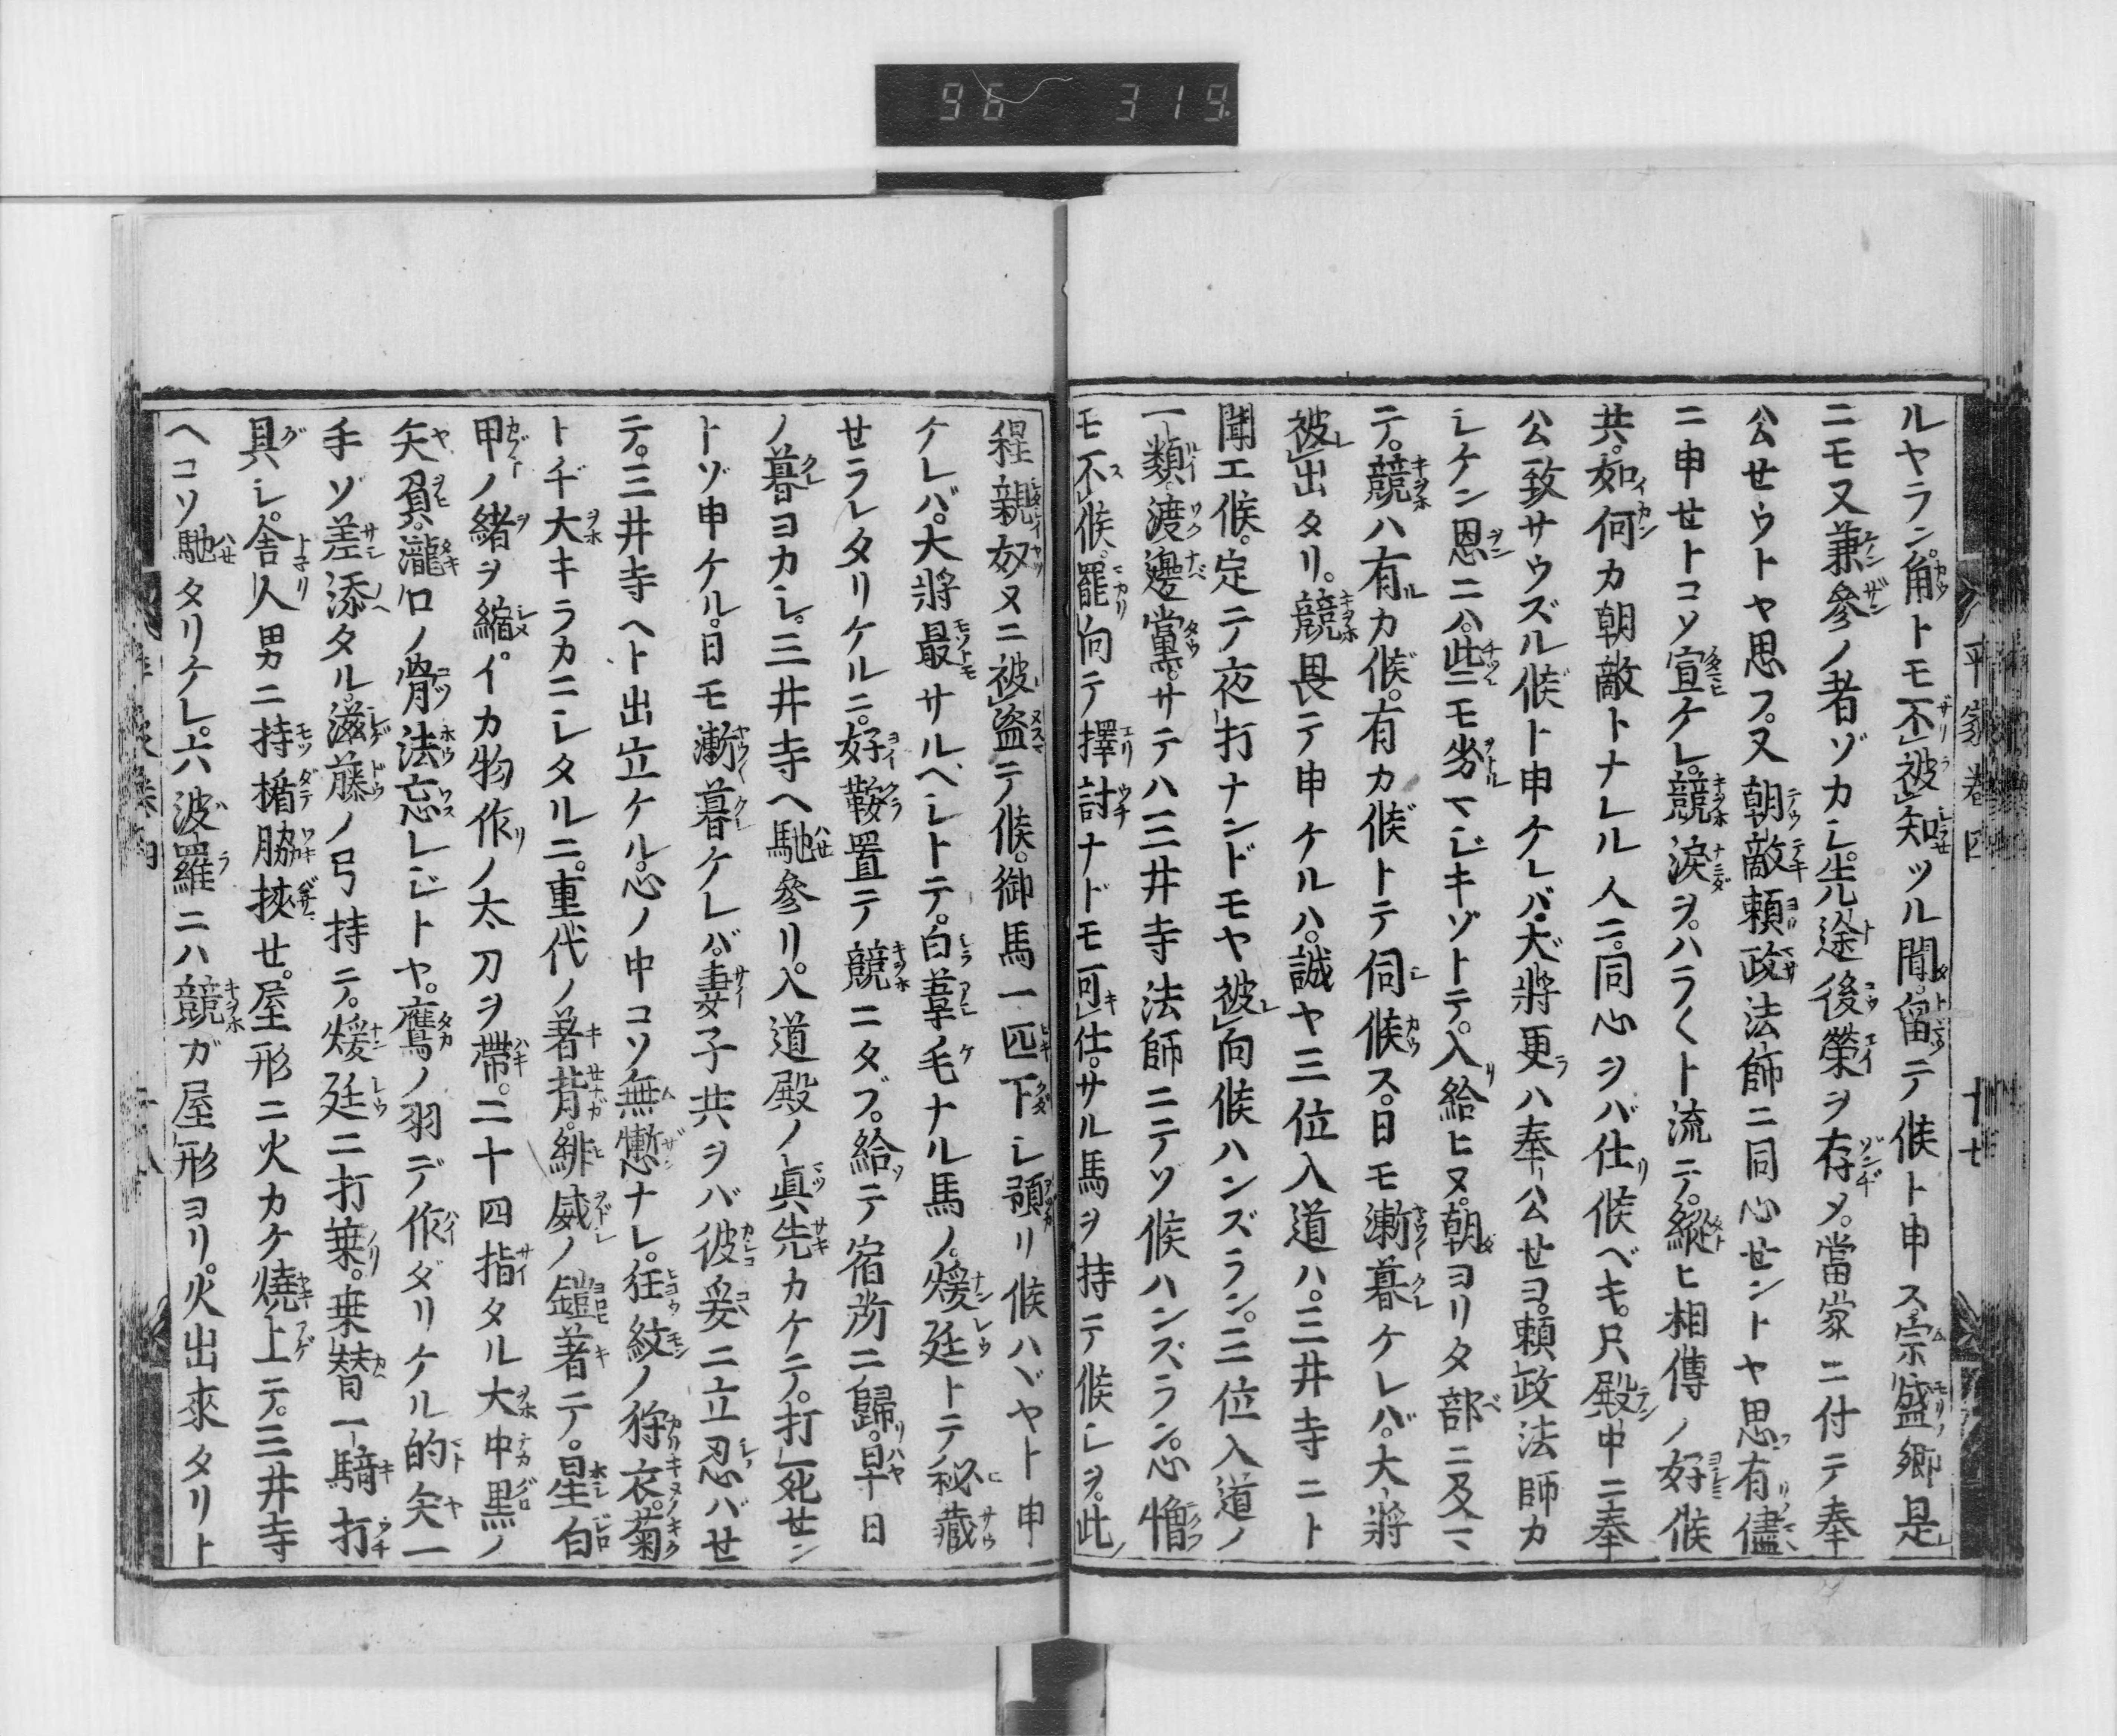 96 319
平家卷四 十七
ルヤラン。角トモ不被知ツル間。留テ候ト申ス。宗盛卿是
ニモ又兼參ノ者ゾカシ。先途後榮ヲ存メ。當家ニ付テ奉
公せウトヤ思フ。又朝敵頼政法師ニ同心せントヤ思。有儘
ニ申せトコソ宣ケレ。競淚ヲ。ハラ〱ト流テ。縱ヒ相傳ノ好候
共。如何カ朝敵トナレル人ニ。同心ヲバ仕候ベキ。只殿中ニ奉
公致サウズル候ト申ケレバ。大將更ハ奉公せヨ。頼政法師カ
シケン恩ニハ。些ニモ劣マジキゾトテ。入給ヒヌ。朝ヨリタ部ニ及マ
テ。競ハ有カ候。有カ候トテ伺候ス。日モ漸暮ケレバ。大將
被出タリ。競畏テ申ケルハ。誠ヤ三位入道ハ。三井寺ニト
聞エ候。定テ夜打ナンドモヤ被向候ハンズラン。三位入道ノ
一類。渡邊黨。サテハ三井寺法師ニテゾ候ハンズラン。心憎
モ不候。罷向テ擇討ナドモ可仕。サル馬ヲ持テ候シヲ。此
程親奴ヌニ被盜テ候。御馬一匹下シ預リ候ハヾヤト申
ケレバ。大將最サルヘシトテ。白葦毛ナル馬ノ。煖廷トテ秘藏
せラレタリケルニ。好鞍置テ競ニタブ。給テ宿所ニ歸。早日
ノ暮ヨカシ。三井寺ヘ馳參リ。入道殿ノ眞先カケテ。打死せン
トゾ申ケル。日モ漸暮ケレバ。妻子共ヲバ彼爰ニ立忍バせ
テ。三井寺ヘト出立ケル。心ノ中コソ無慙ナレ。狂紋ノ狩衣。菊
トヂ大キラカニシタルニ。重代ノ著背。緋威ノ鎧著テ。星白
甲ノ緒ヲ縮。イカ物作ノ太刀ヲ帶。二十四指タル大中黒ノ
矢負。瀧口ノ骨法忘レジトヤ。鷹ノ羽デ作ダリケル的矢一
手ゾ差添タル。滋藤ノ弓持テ。煖廷ニ打乗。乗替一騎打
具シ。舎人男ニ持楯脇挾せ。屋形ニ火カケ燒上テ。三井寺
ヘコソ馳タリケレ。六波羅ニハ競ガ屋形ヨリ。火出來タリト